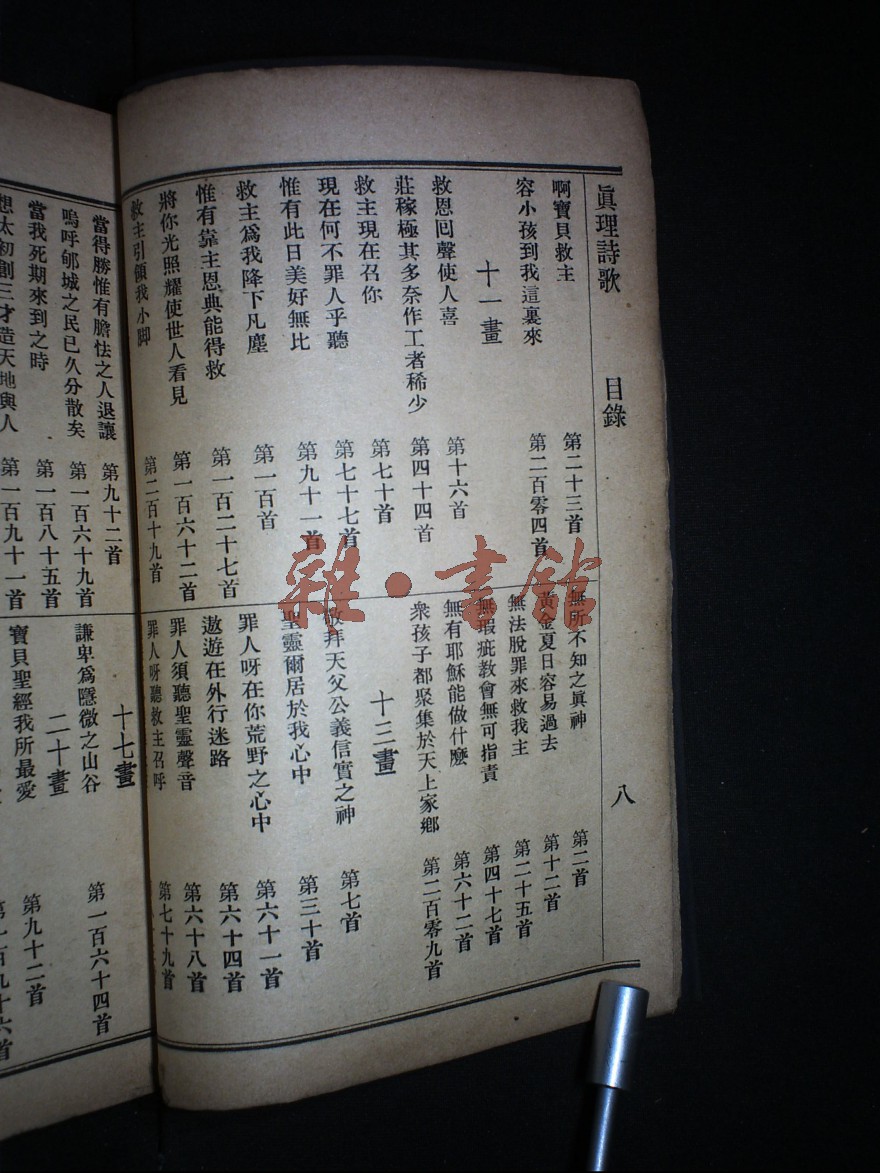 眞理詩歌 目錄 八
啊寶貝救主 第二十三首
容小孩到我這裏來 第二百零四首
十一畫
救恩囘聲使人喜 第十六首
莊稼極其多奈作工者稀少 第四十四首
救主現在召你 第七十首
現在何不罪人乎聽 第七十七首
惟有此日美好無比 第九十一首
救主爲我降下凡塵 第一百首
惟有靠主恩典能得救 第一百二十七首
將你光照耀使世人看見 第一百六十二首
救主引領我小脚 第二百十九首
無所不知之眞神 第二首
黃金夏日容易過去 第十二首
無法脫罪來救我主 第二十五首
無瑕疵教會無可指責 第四十七首
無有耶穌能做什麼 第六十二首
衆孩子都聚集於天上家鄉 第二百零九首
十三畫
敬拜天父公義信實之神 第七首
聖靈爾居於我心中 第三十首
罪人呀在你荒野之心中 第六十一首
遨遊在外行迷路 第六十四首
罪人須聽聖靈聲音 第六十八首
罪人呀聽救主召呼 第七十九首
當得勝惟有膽怯之人退讓 第九十二首
嗚呼郇城之民已久分散矣 第一百六十九首
當我死期來到之時 第一百八十五首
想太初創三才造天地與人 第一百九十一首
十七畫
謙卑爲隱微之山谷 第一百六十四首
二十畫
寶貝聖經我所最愛 第九十二首
雜·書館